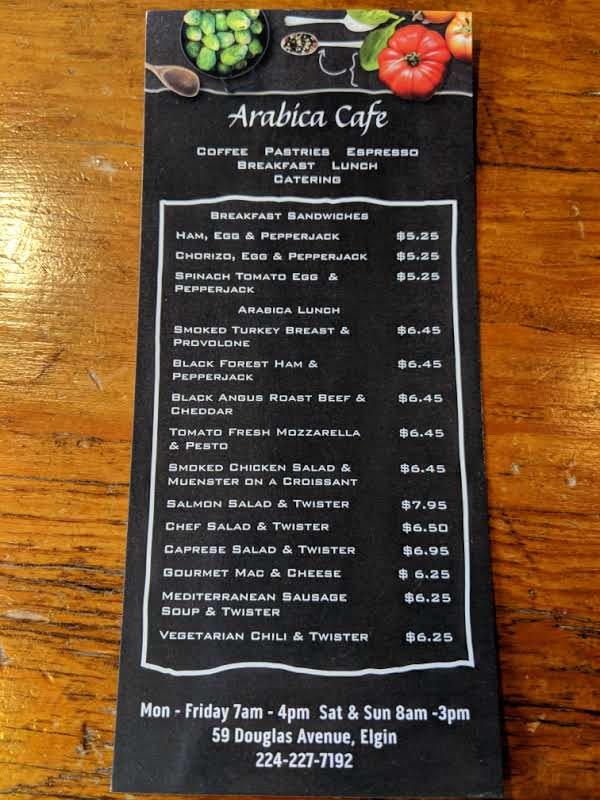 Arabica Cafe
Coffee Pastries Espresso
Breakfast Lunch
Catering
Breakfast Sandwiches
Ham, Egg & Pepperjack $5.25
Chorizo, Egg & Pepperjack $5.25
Spinach Tomato Egg & $5.25
Pepperjack
Arabica Lunch
Smoked Turkey Breast & $6.45
Provolone
Black Forest Ham & $6.45
Pepperjack
Black Angus Roast Beef & $6.45
Cheddar
Tomato Fresh Mozzarella $6.45
& Pesto
Smoked Chicken Salad & $6.45
Muenster on a Croissant
Salmon Salad & Twister $7.95
Chef Salad & Twister $6.50
Caprese Salad & Twister $6.95
Gourmet Mac & Cheese $ 6.25
Mediterranean Sausage $6.25
Soup & Twister
Vegetarian Chili & Twister $6.25
Mon - Friday 7am - 4pm Sat & Sun 8am -3pm
59 Douglas Avenue, Elgin
224-227-7192